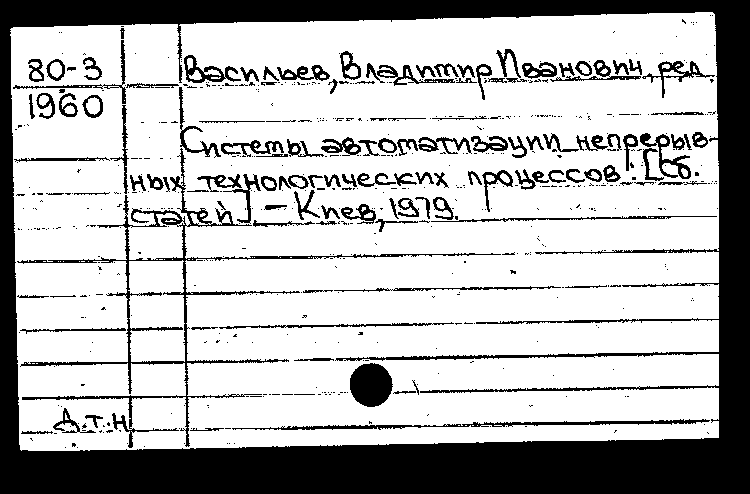 80-3
1960
Васильев, Владимир Иванович, ред.
Системы автоматизации непрерыв-
ных технологических процессов : [Сб.
статей]. – Киев, 1979.
д.т.н